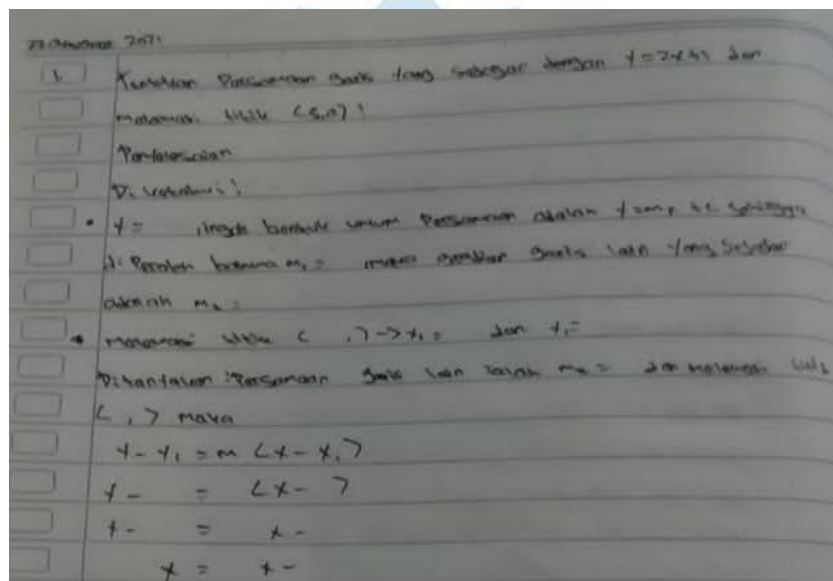 2021
1. Tentukan Persamaan garis Yang sejajar dengan y = 2x+5 dan
melewati titik (5,0) !
Penyelesaian
Diketahui :
• y = , ingat bentuk umum Persamaan adalah y = mx + c sehingga
di Peroleh bahwa m₁ = maka gradien garis lain Yang Sejajar
adalah m₂ =
• melewati titik ( , ) -> x₁ = dan y₁ =
Ditanyakan Persamaan garis lain m₂ = dan melewati titik
( , ) maka
y - y₁ = m (x - x₁)
y - = (x - )
y - = x -
y = x -